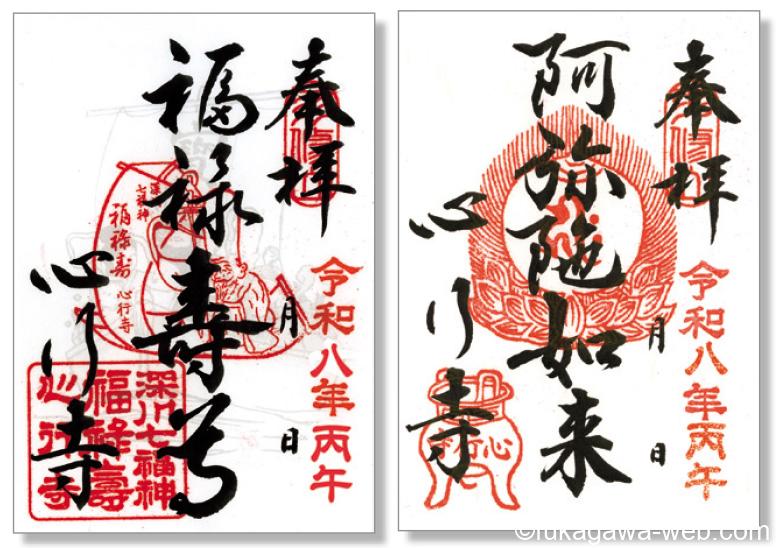 奉拝
令和八年丙午
月 日
福禄寿尊
心行寺
深川
七福神
福禄寿
心行寺
深川七福神
福禄寿
心行寺
奉拝
令和八年丙午
月 日
阿弥陀如来
心行寺
心行寺
©fukagawa-web.com